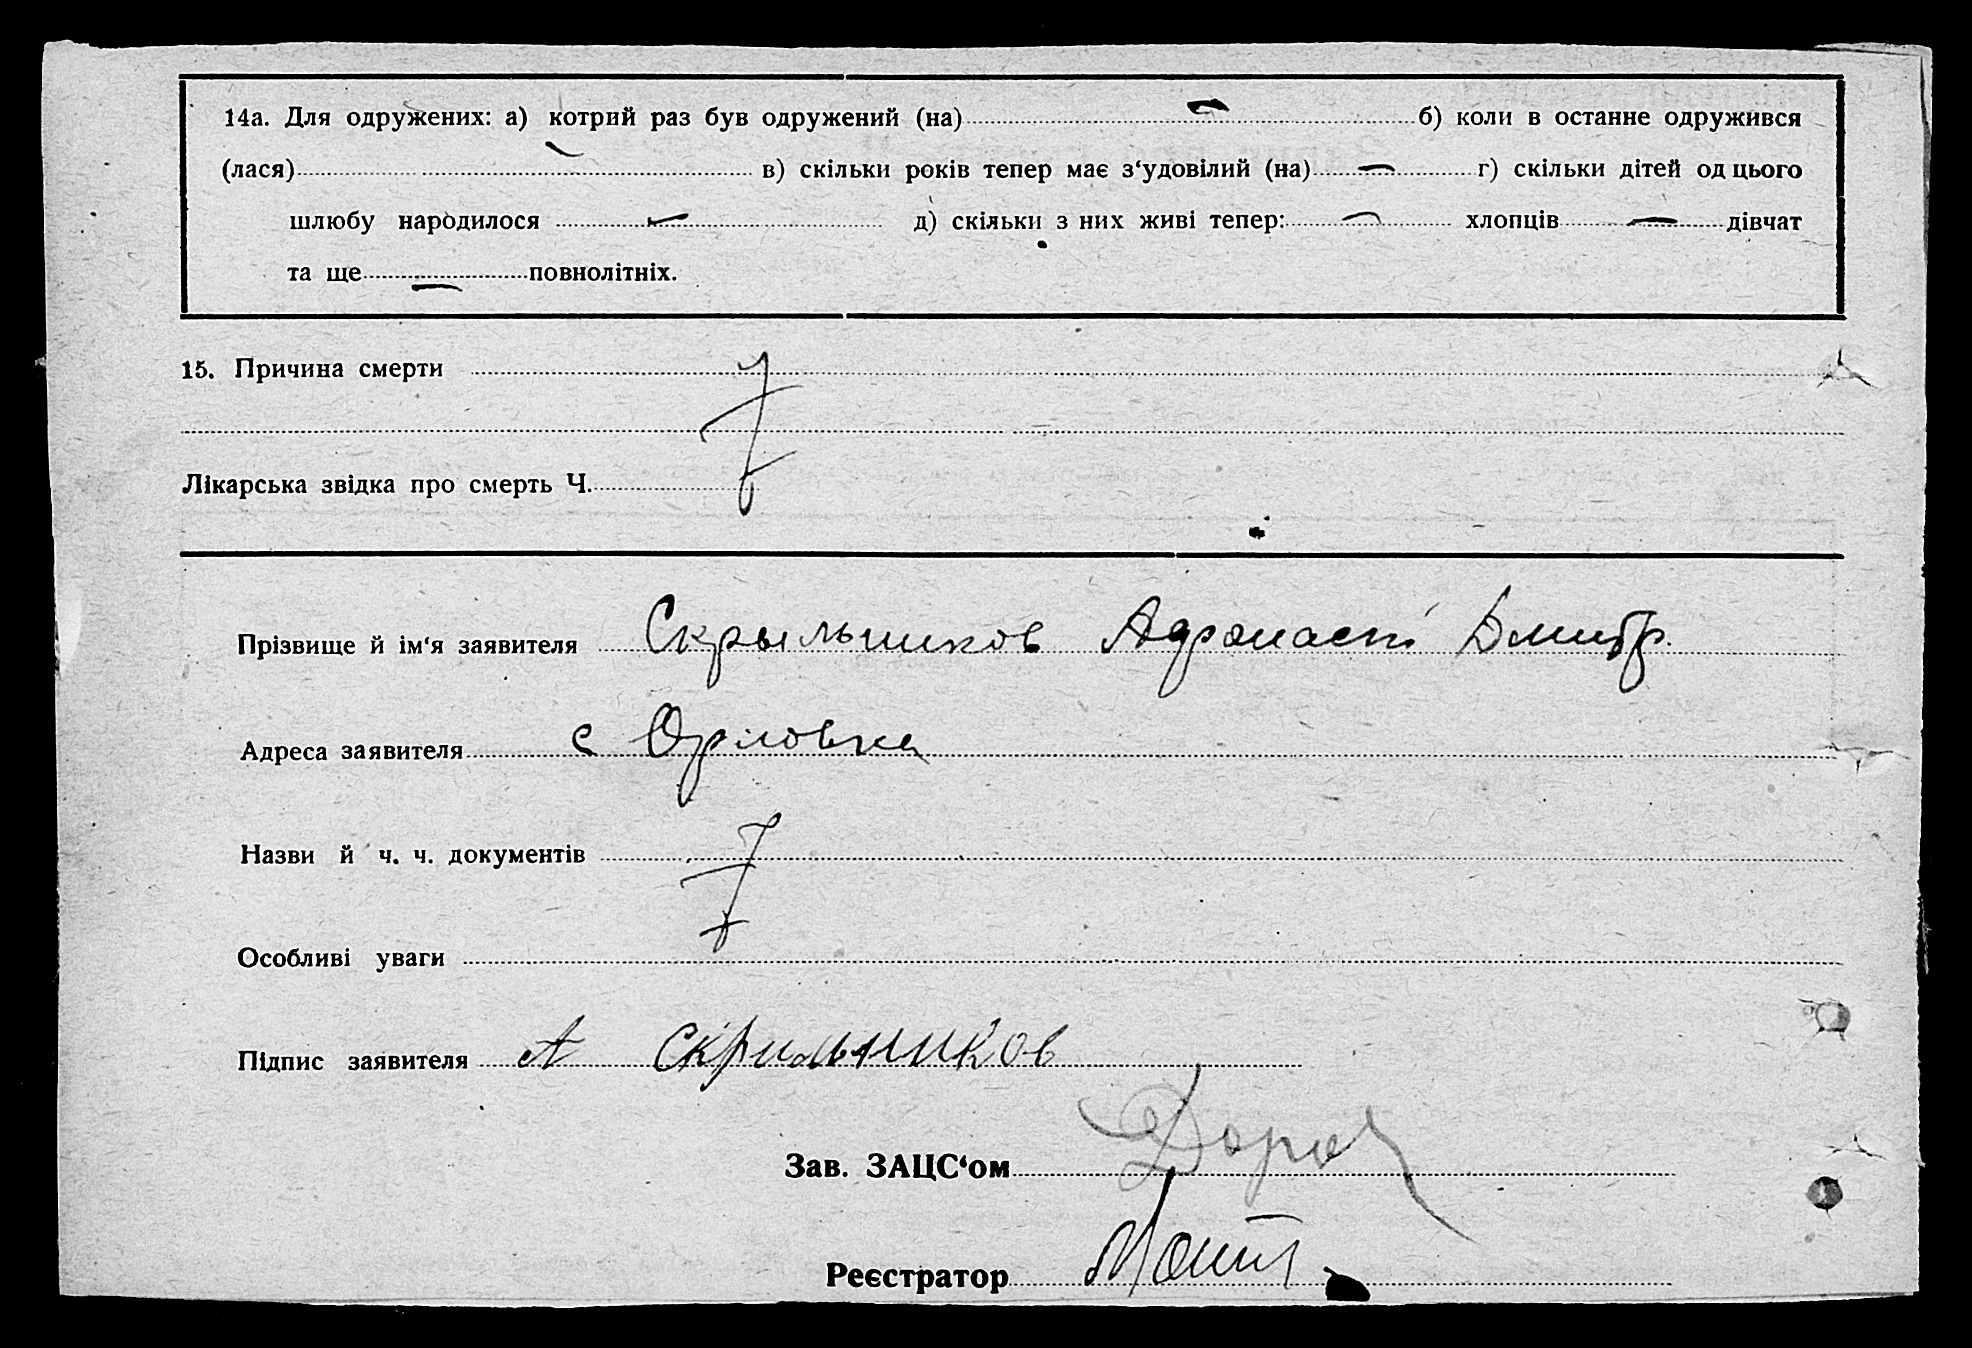 14а. Для одружених: а) котрий раз був одружений (на) — б) коли в останне одружився
(лася) — в) скільки років тепер має з‘удовілий (на) — г) скільки дітей од цього
шлюбу народилося — д) скільки з них живі тепер: — хлопців — дівчат
та ще — повнолітніх.
15. Причина смерти
Лікарська звідка про смерть Ч.
Прізвище й ім‘я заявителя Скрыльников Афанасій Дмитр.
Адреса заявителя с Орловка
Назви й ч. ч. документів
Особливі уваги
Підпис заявителя А Скрильников
Зав. ЗАЦС‘ом
Реєстратор